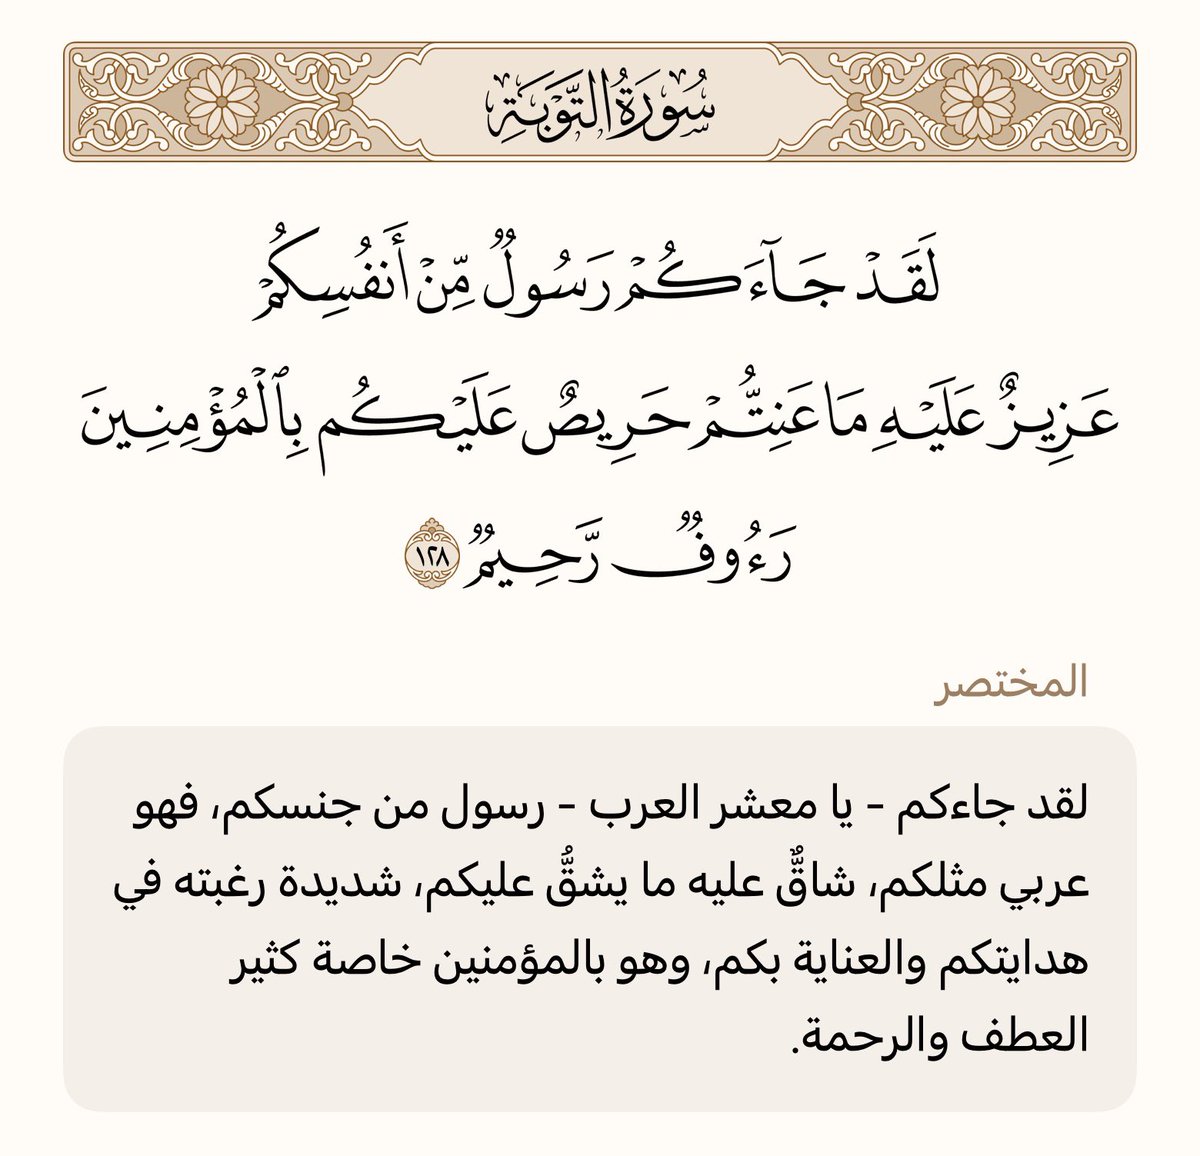 سُورَةُ التَّوۡبَةِ
لَقَدۡ جَآءَكُمۡ رَسُولٞ مِّنۡ أَنفُسِكُمۡ
عَزِيزٌ عَلَيۡهِ مَا عَنِتُّمۡ حَرِيصٌ عَلَيۡكُم بِٱلۡمُؤۡمِنِينَ
رَءُوفٞ رَّحِيمٞ ١٢٨
المختصر
لقد جاءكم - يا معشر العرب - رسول من جنسكم، فهو
عربي مثلكم، شاقٌّ عليه ما يشقُّ عليكم، شديدة رغبته في
هدايتكم والعناية بكم، وهو بالمؤمنين خاصة كثير
العطف والرحمة.